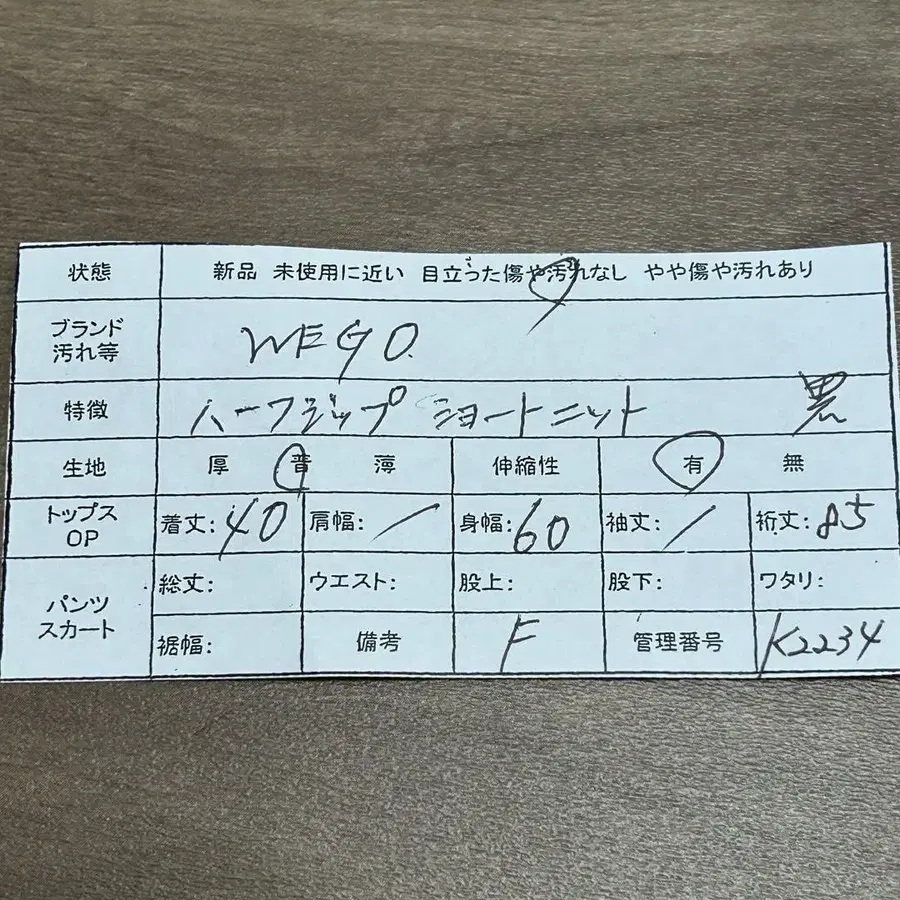 状態 新品 未使用に近い 目立った傷や汚れなし やや傷や汚れあり
ブランド WEGO.
汚れ等
特徴 ハーフジップ ショートニット 黒
生地 厚 普 薄 伸縮性 有 無
トップス 着丈:40 肩幅:/ 身幅:60 袖丈:/ 裄丈:85
OP
パンツ 総丈: ウエスト: 股上: 股下: ワタリ:
スカート 裾幅: 備考 F 管理番号 K2234